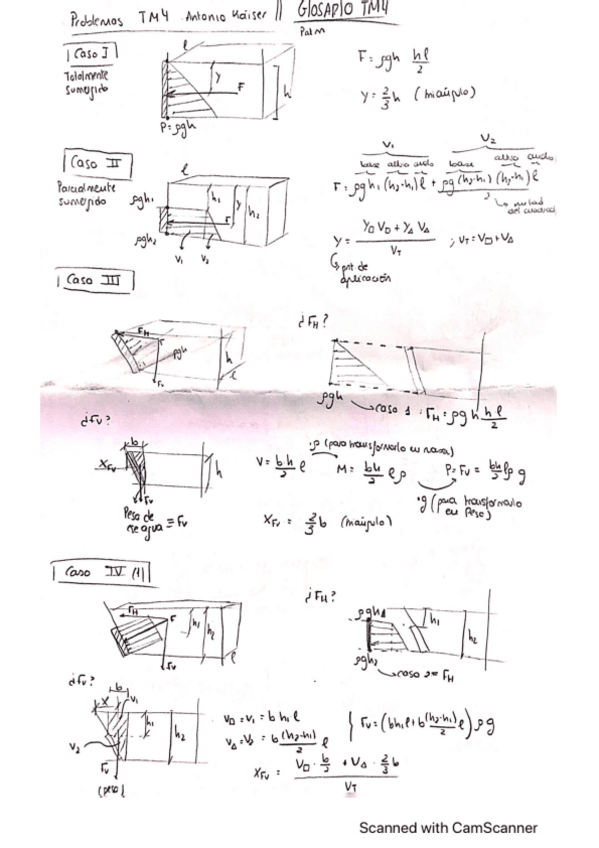 Problemas TM4 Antonio Kaiser || GLOSARIO TM4
Palm
Caso I
Totalmente sumergido
l
y
F
h
P=ρgh
F = ρgh hl/2
y = 2/3 h (triángulo)
Caso II
Parcialmente sumergido
l
ρgh1
ρgh2
h1
y
h2
F
V1
V2
V1
V2
base altura ancho base altura ancho
F = ρgh1 (h2-h1) l + ρg(h2-h1)(h2-h1)/2 l
↳ mitad del cuadrado
y = (y□ V□ + y△ V△)/VT ; VT = V□ + V△
↳ pnt de aplicación
Caso III
FH
F
ρgh
h
l
Fv
¿FH?
ρgh
→ caso 1 : FH = ρgh hl/2
¿Fv?
b
XFv
h
Fv
Peso de ese agua ≡ Fv
·ρ (para transformarlo en masa)
V = bh/2 l M = bh/2 lρ P = Fv = bh/2 lρ g
·g (para transformarlo en peso)
XFv = 2/3 b (triángulo)
Caso IV (1)
FH
F
h1
h2
Fv
l
¿FH?
ρgh1
h1
h2
ρgh2
→ caso 2 = FH
¿Fv?
b
x
V1
V2
h1
h2
Fv
(peso)
V□ = V1 = b h1 l
V△ = V2 = b (h2-h1)/2 l
Fv = (bh1l + b (h2-h1)/2 l) ρg
XFv = (V□ · b/2 + V△ · 2/3 b)/VT
Scanned with CamScanner